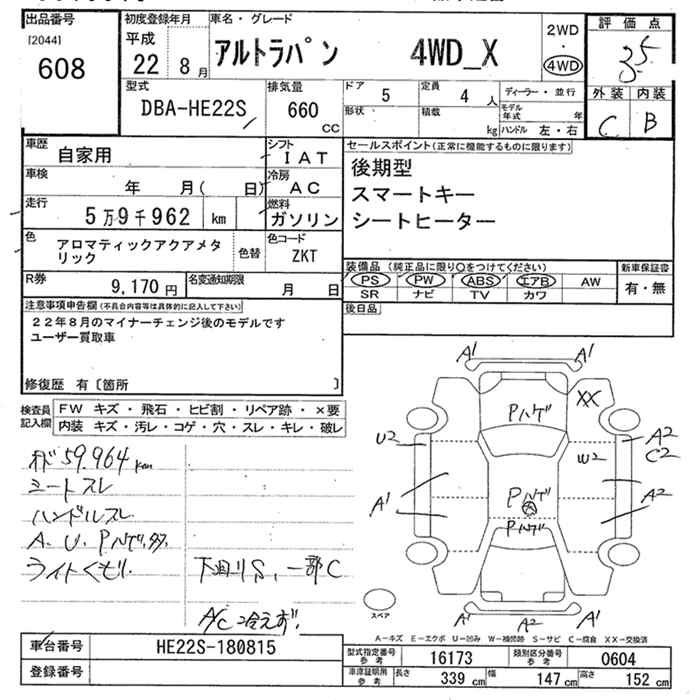 出品番号
[2044]
608
初度登録年月
平成
22年8月
車名・グレード
アルトラパン 4WD_X
2WD
・
4WD
評価点
3.5
外装 内装
C B
型式
DBA-HE22S
排気量
660
CC
ドア 5
形状
定員 4人
積載 kg
ディーラー・並行
モデル年式 年
ハンドル 左・右
車歴
自家用
車検
年 月( 日)
走行
5万9千962 km
シフト
IAT
冷房
AC
燃料
ガソリン
色
アロマティックアクアメタ
リック
色替
色コード
ZKT
R券
9,170円
名変通知期限
月 日
セールスポイント(正常に機能するものに限ります)
後期型
スマートキー
シートヒーター
装備品 (純正品に限り○をつけてください)
PS PW ABS エアB AW
SR ナビ TV カワ
新車保証書
有・無
後日品
注意事項申告欄(不具合内容等は具体的に記入して下さい)
22年8月のマイナーチェンジ後のモデルです
ユーザー買取車
修復歴 有〔箇所 〕
検査員
記入欄
FW キズ・飛石・ヒビ割・リペア跡・×要
内装 キズ・汚レ・コゲ・穴・スレ・キレ・破レ
59,964km
シートスレ
ハンドルスレ
A.U.Pハゲ,多
ライトくもり
下回りS,一部C
A/C冷えず!
A1 A1
Pハゲ XX
U2 W2 A2
C2
A1 Pハゲ A2
Pハゲ
スペア
A1 A2 A1
A-キズ E-エクボ U-凹み W-補修跡 S-サビ C-腐食 XX-交換済
車台番号 HE22S-180815
登録番号
型式指定番号
参考
16173
類別区分番号
参考
0604
車庫証明用
参考
長さ 339cm 幅 147cm 高さ 152cm